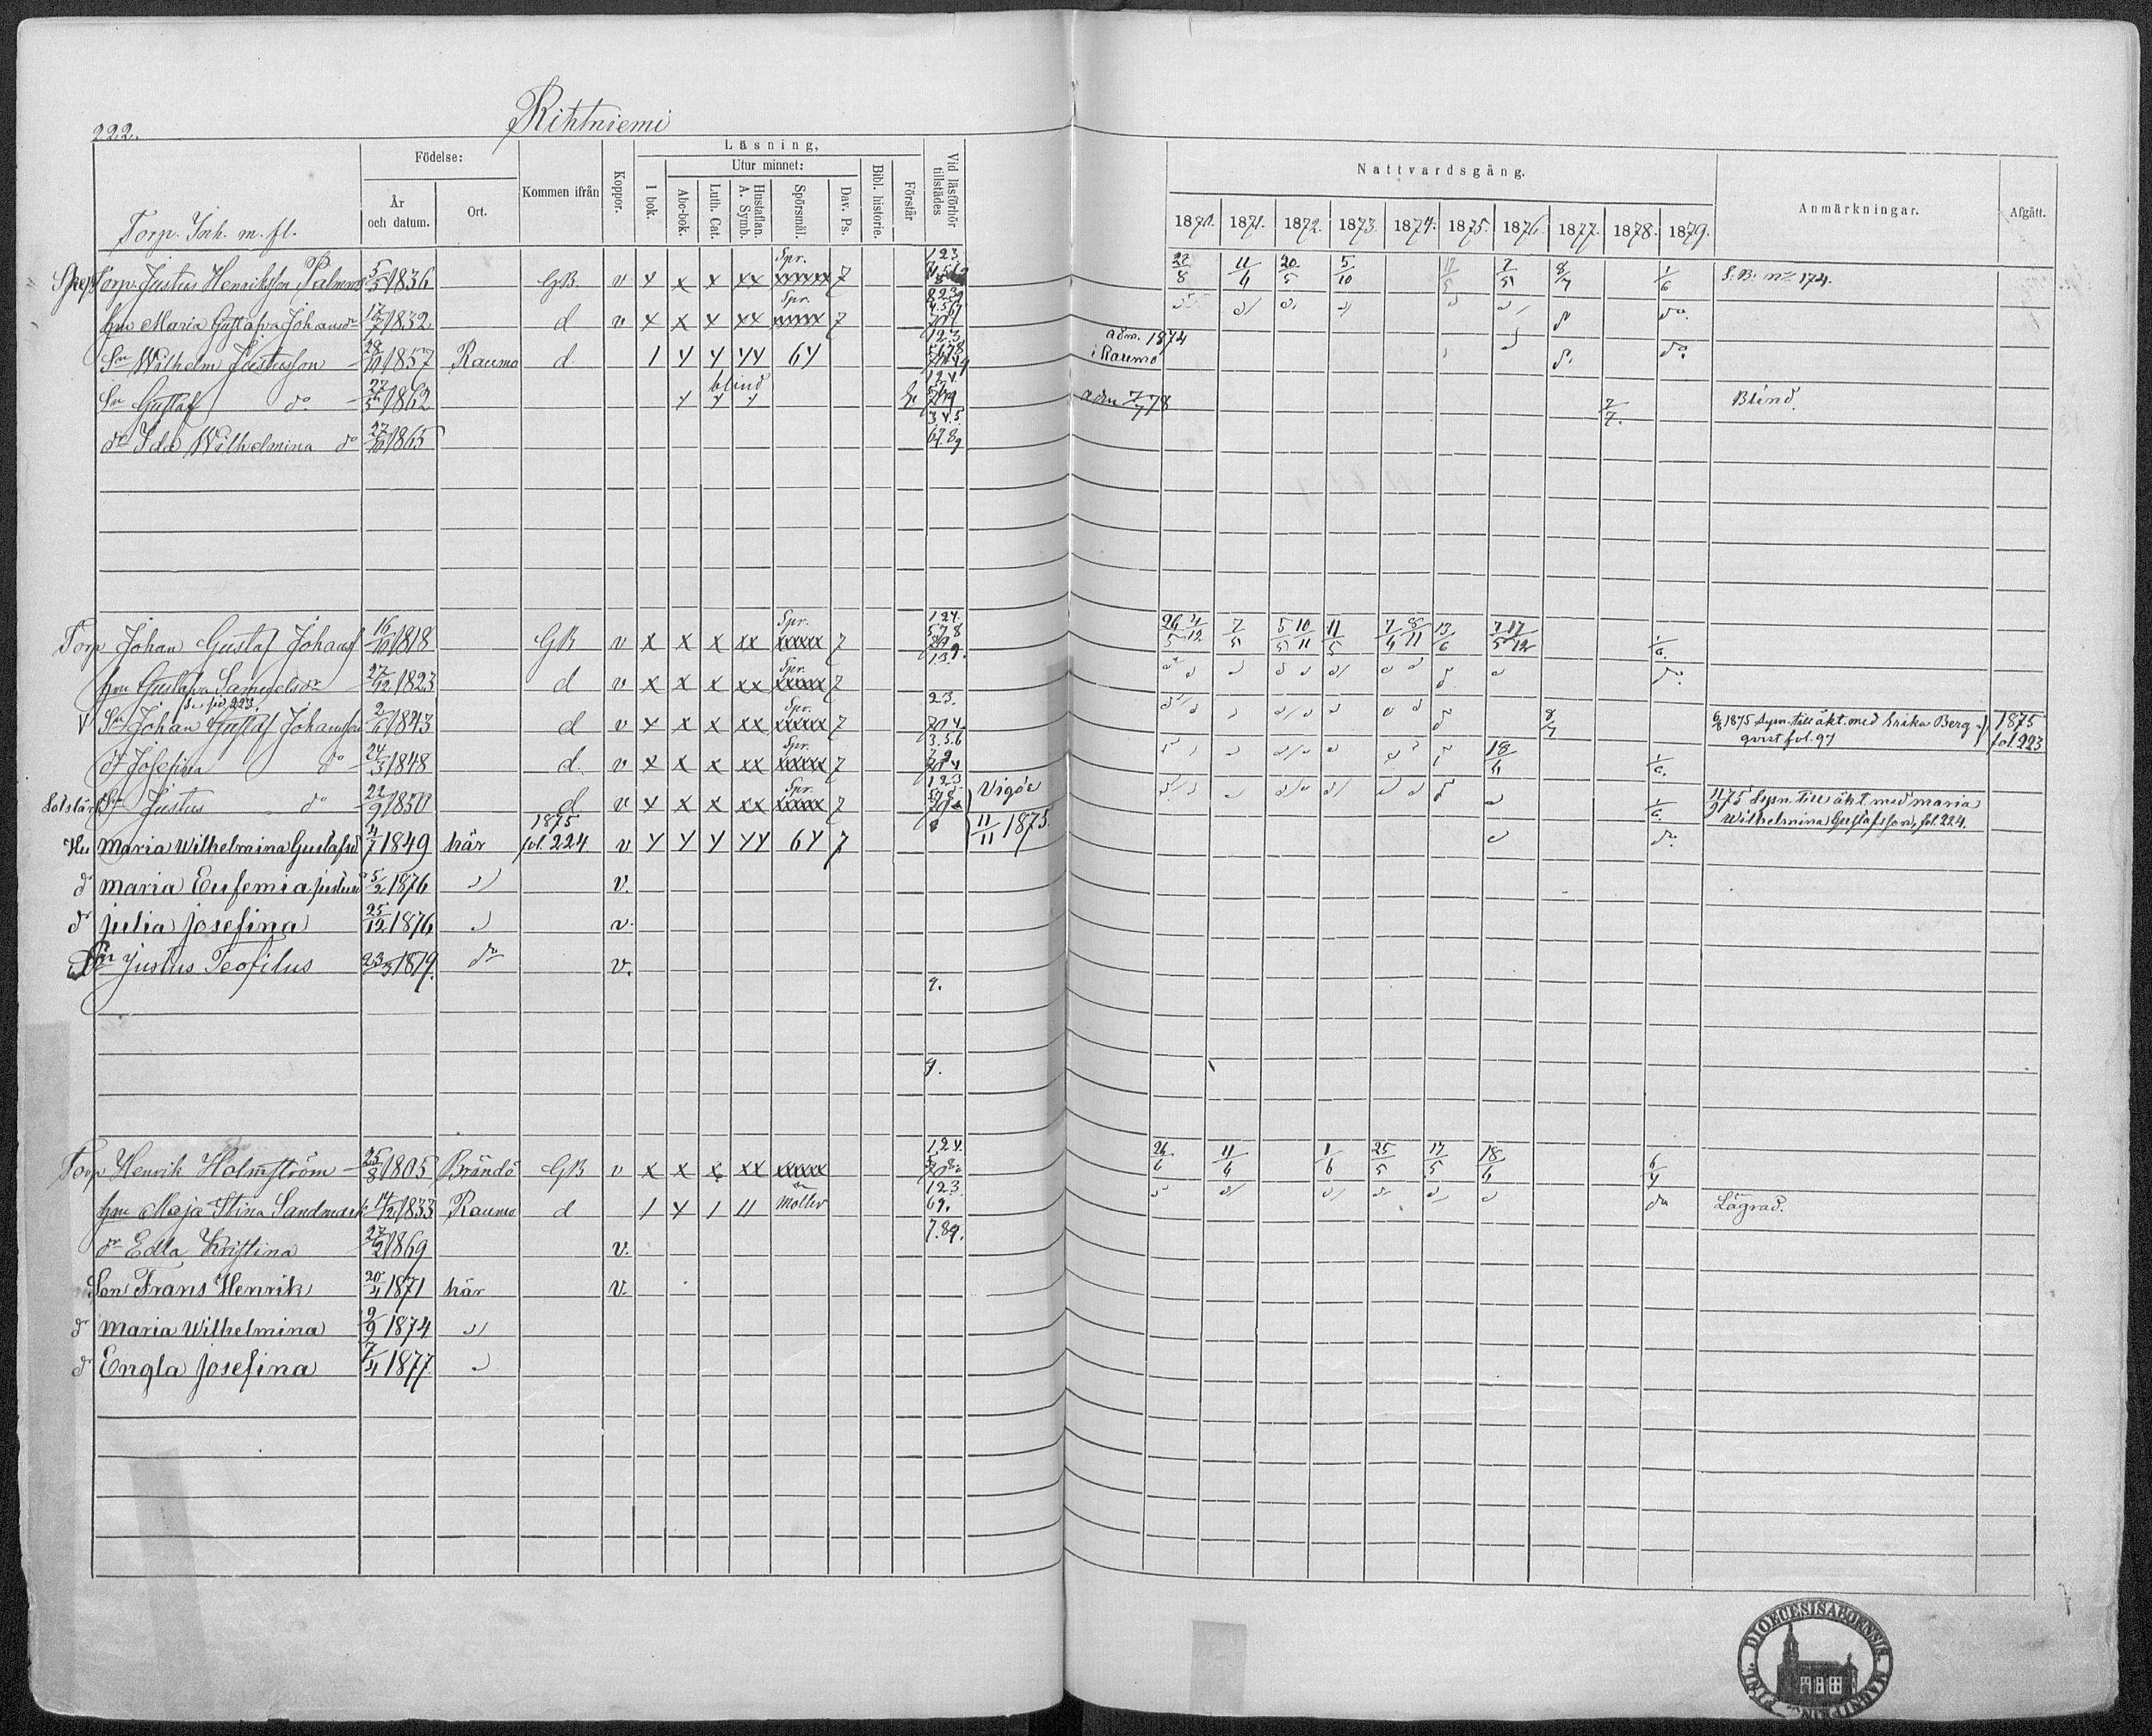 222.
Rihtniemi
Födelse:
Läsning,
Utur minnet:
År och datum.
Ort.
Kommen ifrån
Koppor.
I bok.
Abc-bok.
Luth. Cat.
Hustaflan. A. Symb.
Spörsmål.
Dav. Ps.
Bibl. historie.
Förstår
Vid läsförhör tillstädes
Nattvardsgång.
Anmärkningar.
Afgått.
1870. 1871. 1872. 1873. 1874. 1875. 1876. 1877. 1878. 1879.
Torp. Inh. m. fl.
Torp. Justus Henriksson 5/5 1836 GB v x x x xx Spr. xxxxx 7 22/8 11/4 20/5 5/10 17/5 7/5 8/7 1/6 S.B. no 174.
hu Maria Gustafva Johansdr 1832 d v x x x xx Spr. 7 do
Sn Wilhelm Justusson 28/10 1857 Raumo d 1 y y yy 6y adm. 1874 i Raumo do
Sn Gustaf do 27/5 1862 blind y y y adm 7/7 78 7/7. Blind.
dr Ida Wilhelmina do 27/10 1865 3.4.5. 67.89
Torp Johan Gustaf Johanss 16/10 1818 GB v x x x xx Spr. xxxxx 7 26/5 4/12 7/5 5/5 10/11 11/5 7/4 8/11 13/6 7/5 17/12 1/6.
hu Gustafva Samuelsdr 27/12 1823 d v x x x xx Spr. xxxxx 7 do
Se sid 223.
V Sn Johan Gustaf Johansson 2/6 1843 d v x x x xx Spr. xxxxx 7 23. 8/7 6/8 1875 Lysn. till äkt. med Erika Berg- qvist fol. 97 1875 fol 223
dr Josefina do 24/3 1848 d. v x x x xx Spr. xxxxx 7 3.5.6 18/4 1/6.
Sn Justus do 22/9 1850 d v x x x xx Spr. xxxxx 7 123 1/6. Vigde 11/11 1875. 11/9 75 Lysn. till äkt. med Maria Wilhelmina Gustafsson, fol. 224.
Hu Maria Wilhelmina Gustafsd 4/7 1849 här 1875 fol. 224 v y y y yy 6y 7 do
dr Maria Eufemia Justusd 5/2 1876 v.
dr Julia Josefina 25/12 1876 v.
Sn Justus Teofilus 23/3 1879. do v.
9.
9.
Torp Henrik Holmström 25/8 1805 Brändö GB v x x x xx xxxxx 1.24. 26/6 11/4 1/6 25/5 17/5 18/4 6/4
hu Maja Stina Sandmark 14/12 1833 Raumo d 1 y 1 11 123 69. do
dr Edla Kristina 27/2 1869 v. 7.89.
Son Frans Henrik 20/4 1871 här v.
dr Maria Wilhelmina 9/9 1874
dr Engla Josefina 7/4 1877.